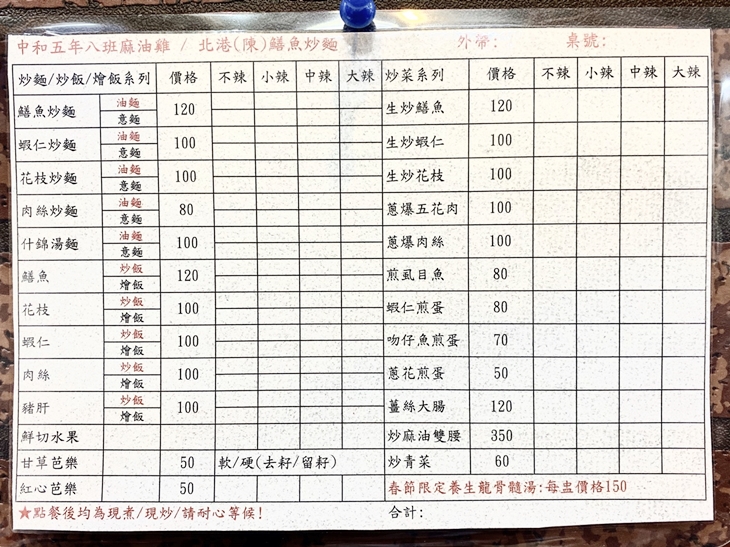 中和五年八班麻油雞 / 北港(陳)鱔魚炒麵 外帶: 桌號:
炒麵/炒飯/燴飯系列 價格 不辣 小辣 中辣 大辣 炒菜系列 價格 不辣 小辣 中辣 大辣
鱔魚炒麵 油麵 意麵 120 生炒鱔魚 120
蝦仁炒麵 油麵 意麵 100 生炒蝦仁 100
花枝炒麵 油麵 意麵 100 生炒花枝 100
肉絲炒麵 油麵 意麵 80 蔥爆五花肉 100
什錦湯麵 油麵 意麵 100 蔥爆肉絲 100
鱔魚 炒飯 燴飯 120 煎虱目魚 80
花枝 炒飯 燴飯 100 蝦仁煎蛋 80
蝦仁 炒飯 燴飯 100 吻仔魚煎蛋 70
肉絲 炒飯 燴飯 100 蔥花煎蛋 50
豬肝 炒飯 燴飯 100 薑絲大腸 120
鮮切水果 炒麻油雙腰 350
甘草芭樂 50 軟/硬(去籽/留籽) 炒青菜 60
紅心芭樂 50 春節限定養生龍骨髓湯:每盅價格150
★點餐後均為現煮/現炒/請耐心等候! 合計: